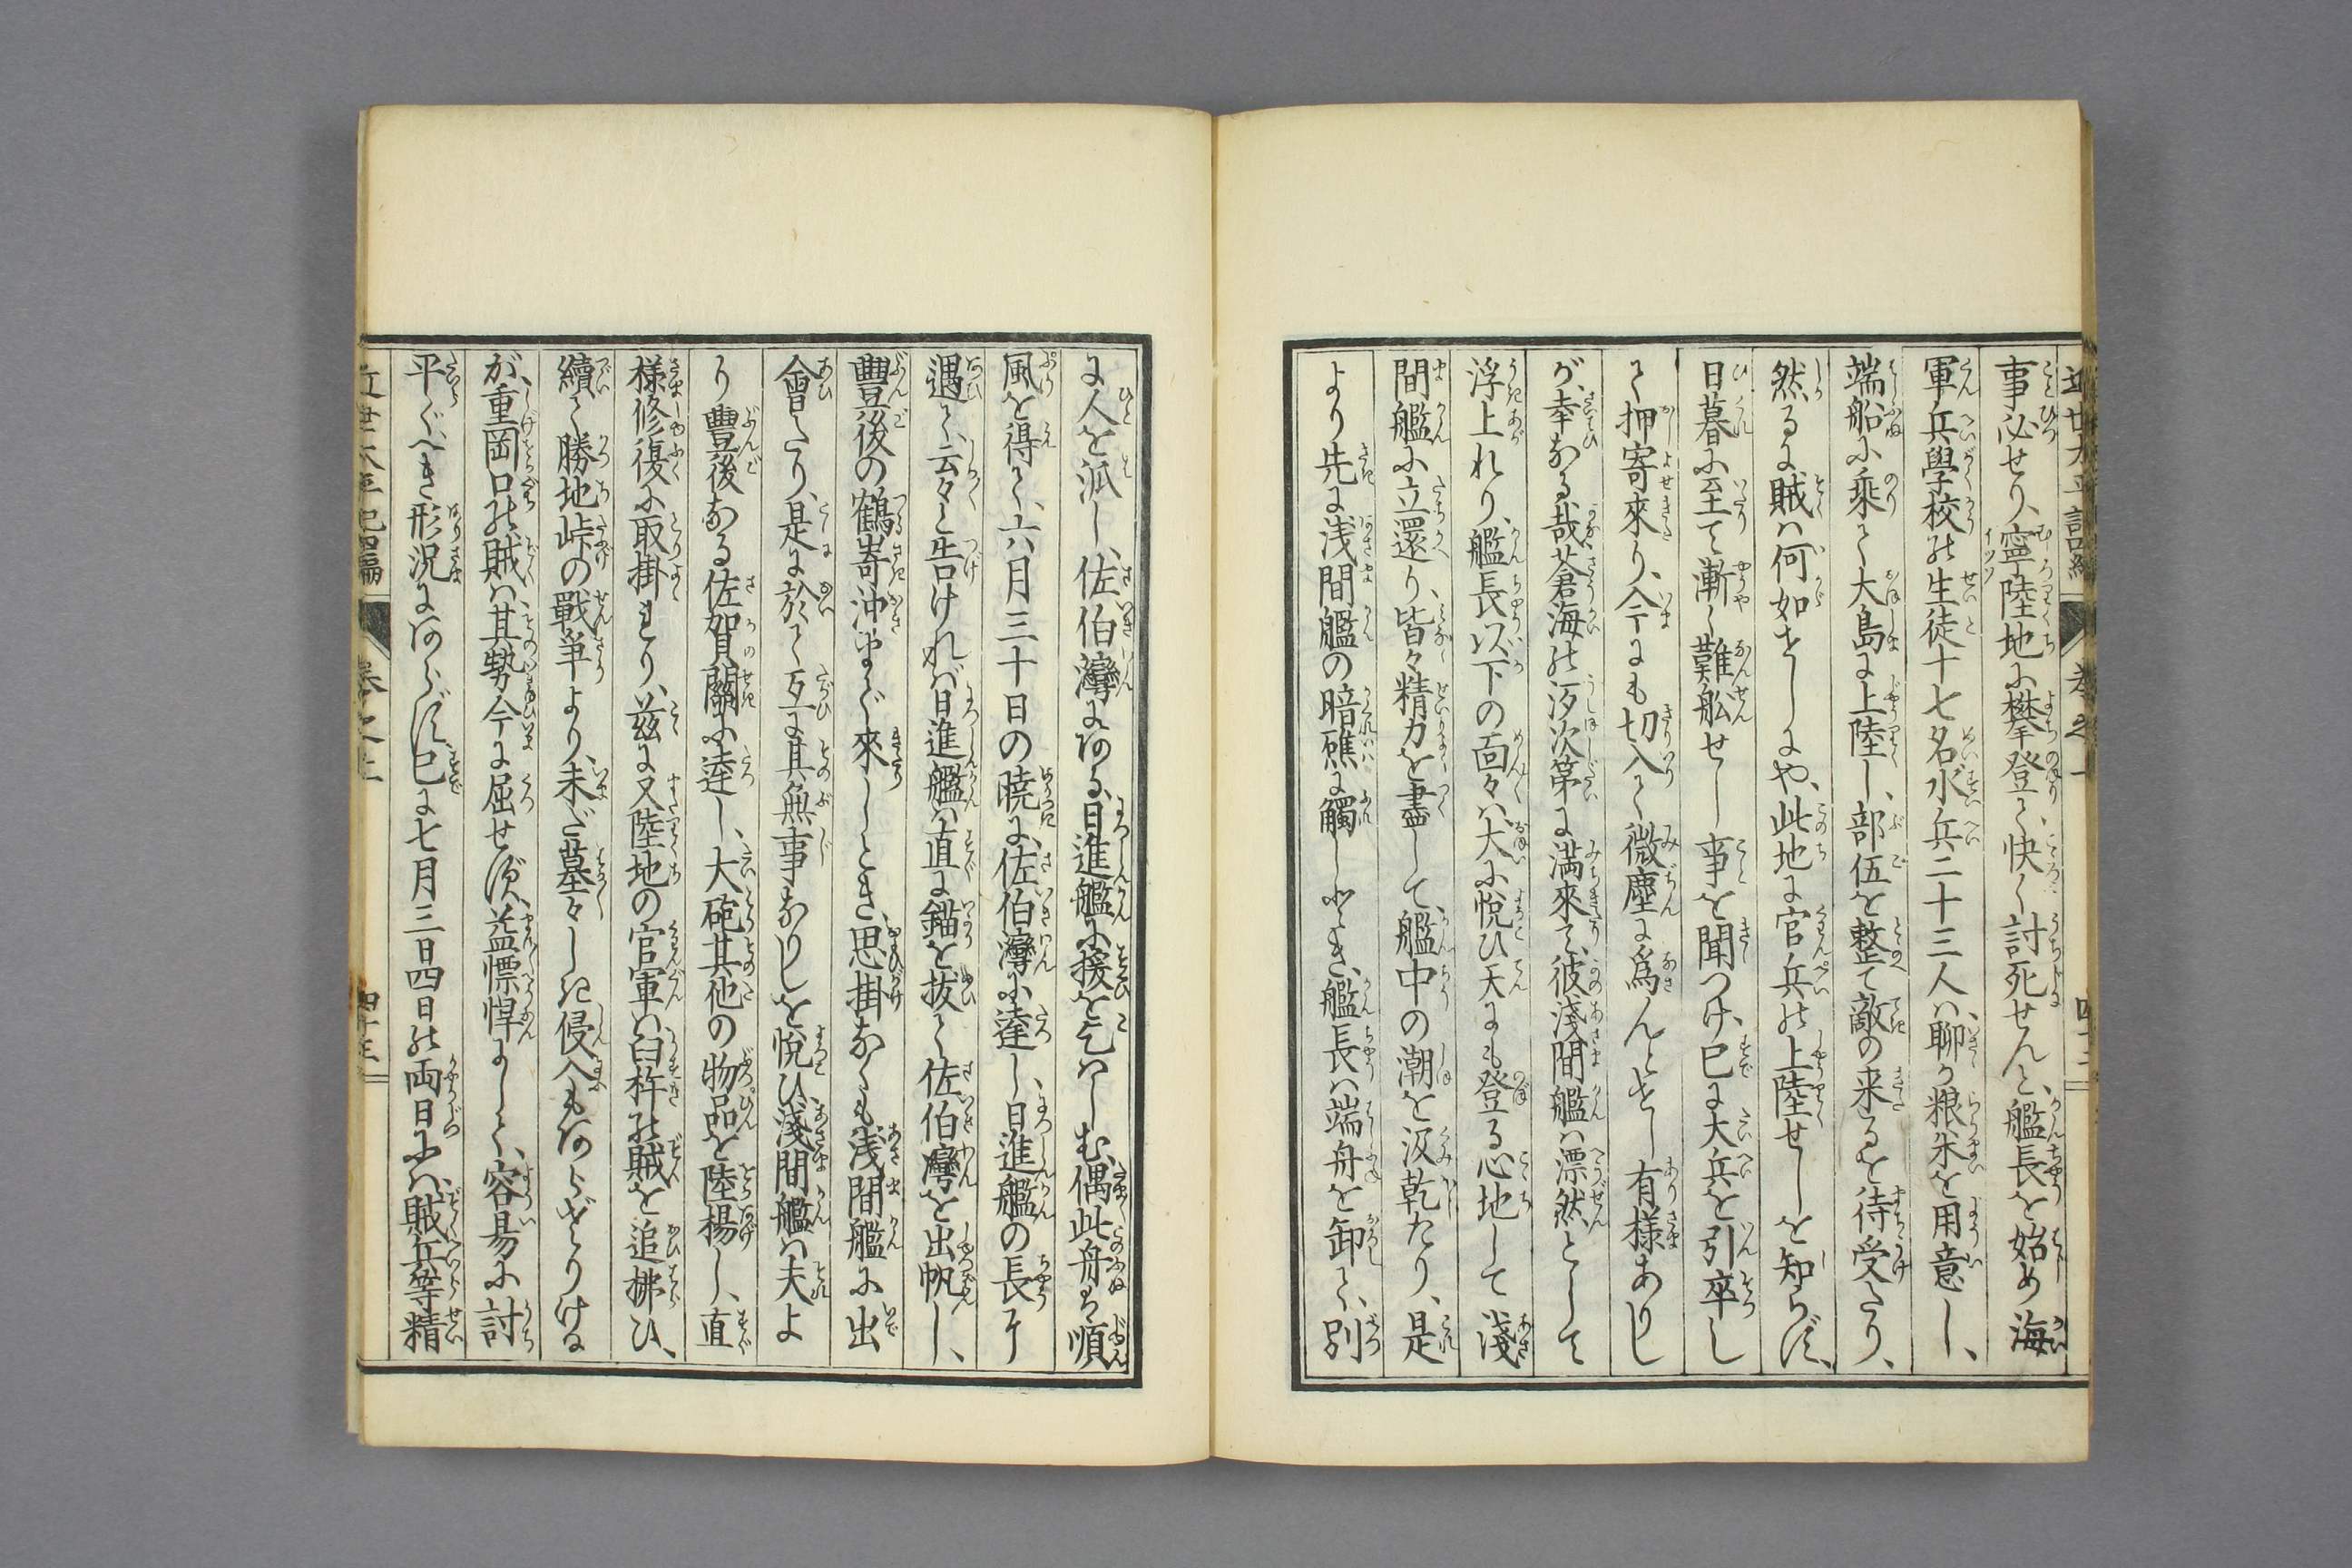 事必せり、寧陸地に攀登て快く討死せんと、艦長を始め海
軍兵學校の生徒十七名水兵二十三人は、聊か粮米を用意し、
端船に乗て大島に上陸し、部伍を整て敵の来るを待受たり、
然るに賊は何如せしにや、此地に官兵の上陸せしを知らず、
日暮に至て漸く難舩せし事を聞つけ、已に大兵を引卒し
て押寄來り、今にも切入て微塵に為んとせし有様ありし
が、幸なる哉蒼海の汐次第に満來て、彼淺間艦は漂然として
浮上れり、艦長以下の面々は大に悦ひ天にも登る心地して淺
間艦に立還り、皆々精力を盡して、艦中の潮を汲乾たり、是
より先に浅間艦の暗礁に觸しとき、艦長は端舟を卸て、別
に人を派し、佐伯灣にある日進艦に援を乞はしむ、偶此舟も順
風を得て、六月三十日の暁に、佐伯灣に達し、日進艦の長に
遇て、云々と告けれバ日進艦は直に錨を抜て佐伯灣を出帆し、
豐後の鶴嵜沖まで來しとき、思掛なくも浅間艦に出
會たり、是に於て互に其無事なりしを悦ひ、淺間艦は夫よ
り豐後なる佐賀關に達し、大砲其他の物品を陸揚し、直
様修復に取掛れり、茲に又陸地の官軍は臼杵の賊を追拂ひ、
續て勝地峠の戰争より、未だ墓々しき侵入もあらざりける
が、重岡口の賊は其勢今に屈せず、益慓悍にして、容易に討
平ぐべき形況にあらず、已に七月三日四日の両日には、賊兵等精
近世太平記四編
巻之上
四十三